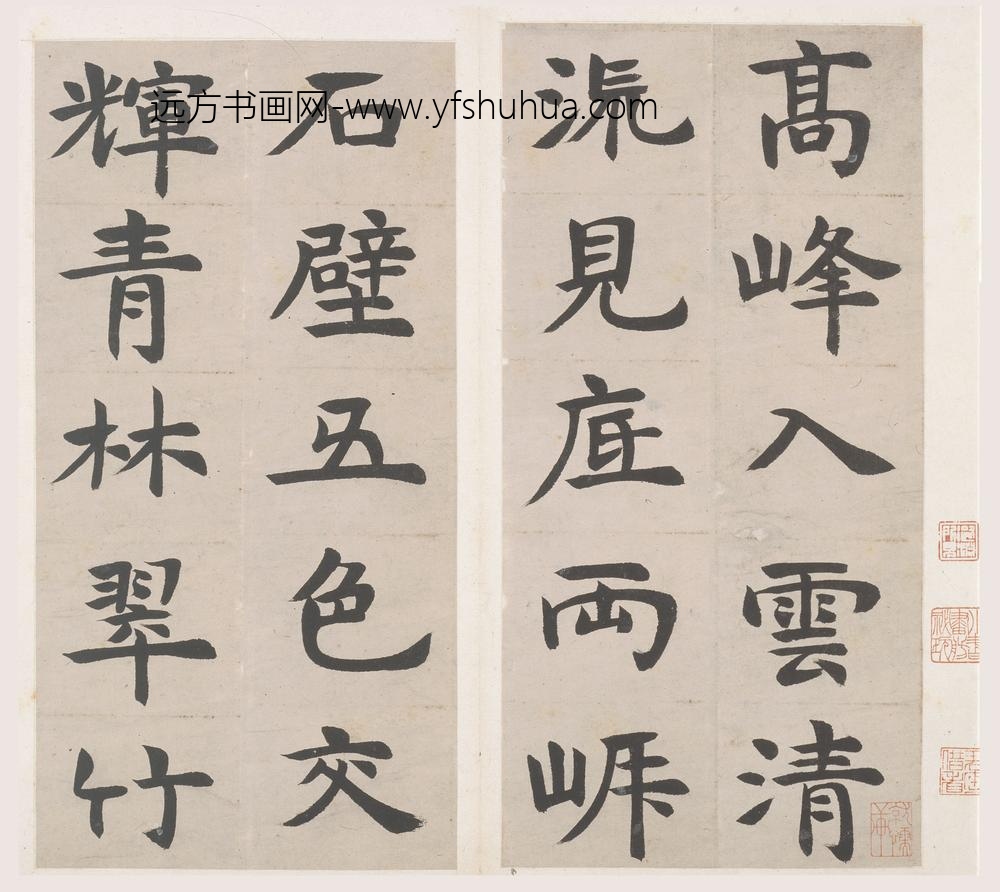 高峰入雲清
流見底兩岸
石壁五色交
輝青林翠竹
远方书画网-www.yfshuhua.com